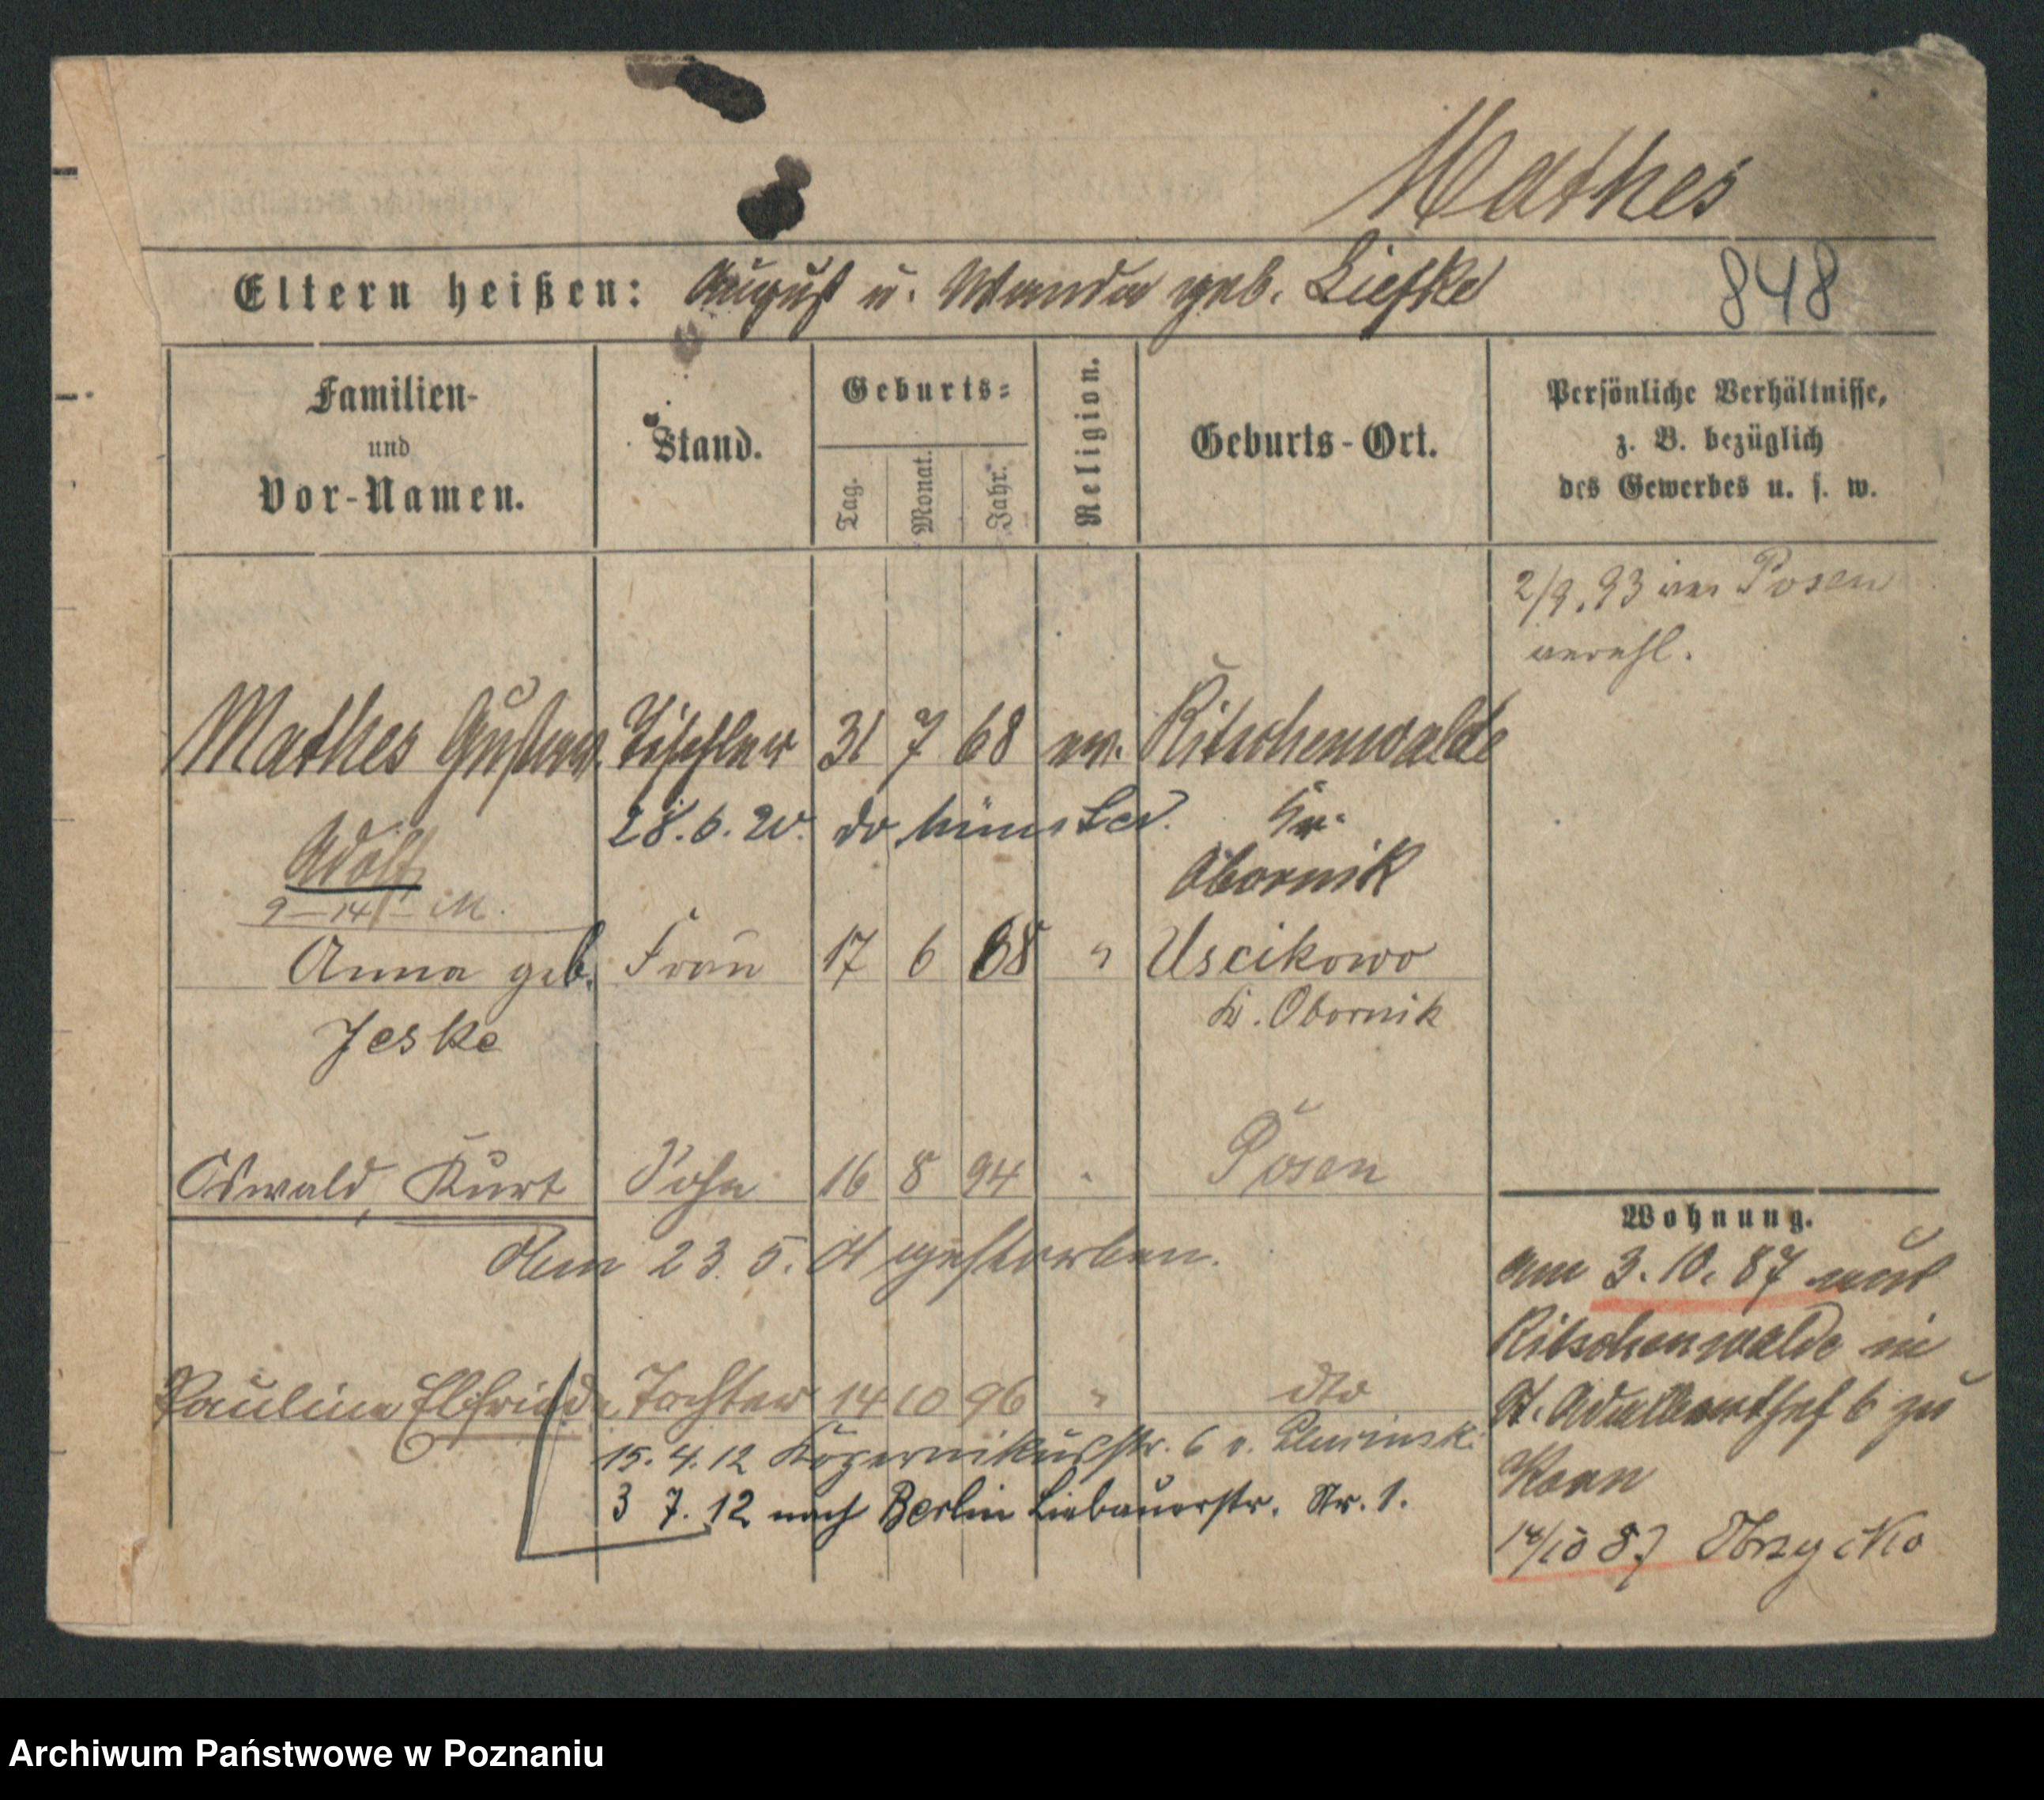 Mathes
Eltern heißen: August u. Wanda geb. Liefke
848
Familien-
und
Vor-Namen.
Stand.
Geburts-
Tag.
Monat.
Jahr.
Religion.
Geburts-Ort.
Persönliche Verhältnisse,
z. B. bezüglich
des Gewerbes u. s. w.
2/9. 93 in Posen
verehl.
Mathes Gustav Tischler 31 7 68 ev. Ritschenwalde
28. 6. 20.
Kr.
Adolf
Obornik
9-14 M.
Anna geb. Frau 17 6 68 " Uscikowo
Jeske
Kr. Obornik
Oswald, Kurt Sohn 16 8 94 " Posen
Am 23. 5. 01 gestorben.
Pauline Elfriede Tochter 14 10 96 " dto
15. 4. 12 Kopernikusstr. 6 v.
3 7. 12 nach Berlin Liebauerstr. Nr. 1.
Wohnung.
am 3. 10. 87 aus
Ritschenwalde in
St. Adalberthof 6 zu
14/10 87 Obrzycko
Archiwum Państwowe w Poznaniu